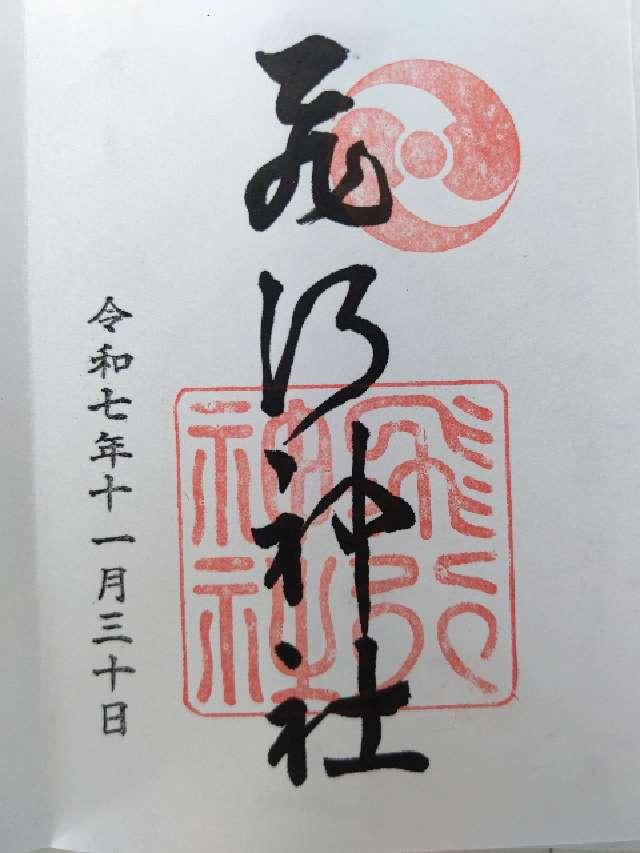 飛行神社
飛行
神社
令和七年十一月三十日